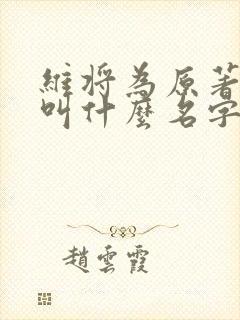 維將為原著
叫什麼名字
趙雲霞